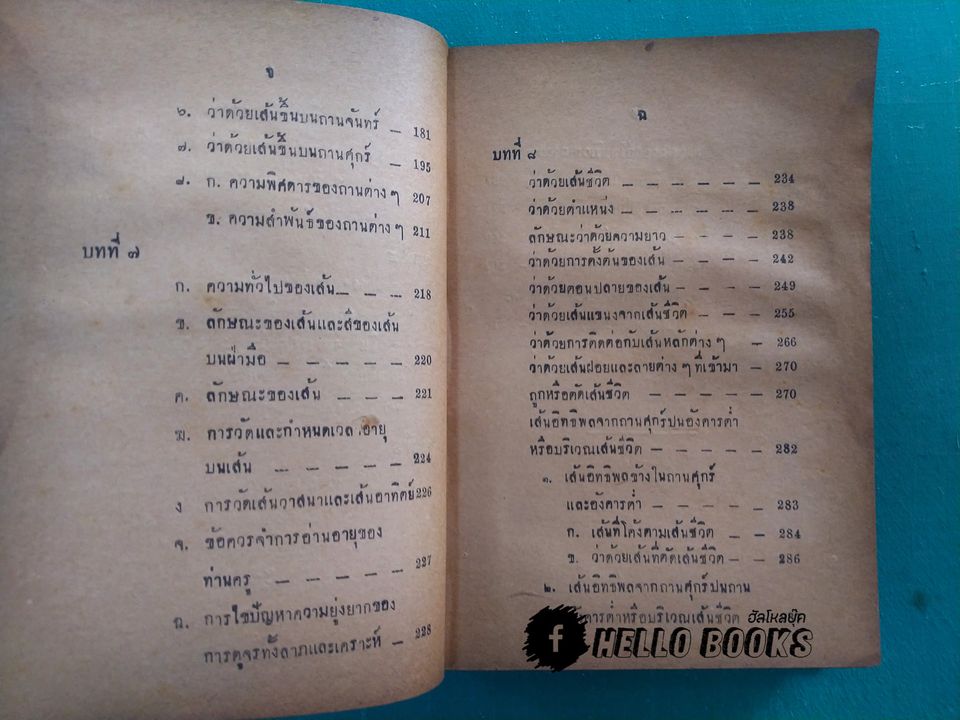 จ
๖. ว่าด้วยเส้นขึ้นบนถานจันทร์ — 181
๗. ว่าด้วยเส้นขึ้นบนถานศุกร์ — 195
๘. ก. ความพิศดารของถานต่าง ๆ 207
ข. ความสำพันธ์ของถานต่าง ๆ 211
บทที่ ๗
ก. ความทั่วไปของเส้น — — — 218
ข. ลักษณะของเส้นและสีของเส้น
บนฝ่ามือ — — — — — 220
ค. ลักษณะของเส้น — — — 221
ฆ. การวัดและกำหนดเวลาอายุ
บนเส้น — — — — — 224
ง การวัดเส้นวาสนาและเส้นอาทิตย์ 226
จ. ข้อควรจำการอ่านอายุของ
ท่านครู — — — — — 227
ฉ. การไขปัญหาความยุ่งยากของ
การดูจรทั้งลาภและเคราะห์ — 228
ฉ
บทที่ ๘
ว่าด้วยเส้นชีวิต — — — — — — 234
ว่าด้วยตำแหน่ง — — — — — — 238
ลักษณะว่าด้วยความยาว — — — — 238
ว่าด้วยการตั้งต้นของเส้น — — — — 242
ว่าด้วยตอนปลายของเส้น — — — — 249
ว่าด้วยเส้นแขนงจากเส้นชีวิต — — — 255
ว่าด้วยการติดต่อกับเส้นหลักต่าง ๆ — 266
ว่าด้วยเส้นฝอยและลายต่าง ๆ ที่เข้ามา — 270
ถูกหรือตัดเส้นชีวิต — — — — — 270
เส้นอิทธิพลจากถานศุกร์ปนอังคารต่ำ
หรือบริเวณเส้นชีวิต — — — — — 282
๑. เส้นอิทธิพลข้างในถานศุกร์
และอังคารต่ำ — — — — 283
ก. เส้นที่โค้งตามเส้นชีวิต — — 284
ข. ว่าด้วยเส้นที่ตัดเส้นชีวิต — — 286
๒. เส้นอิทธิพลจากถานศุกร์ปนถาน
คารต่ำหรือบริเวณเส้นชีวิต
f
ฮัลโหลบุ๊ค
HELLO BOOKS